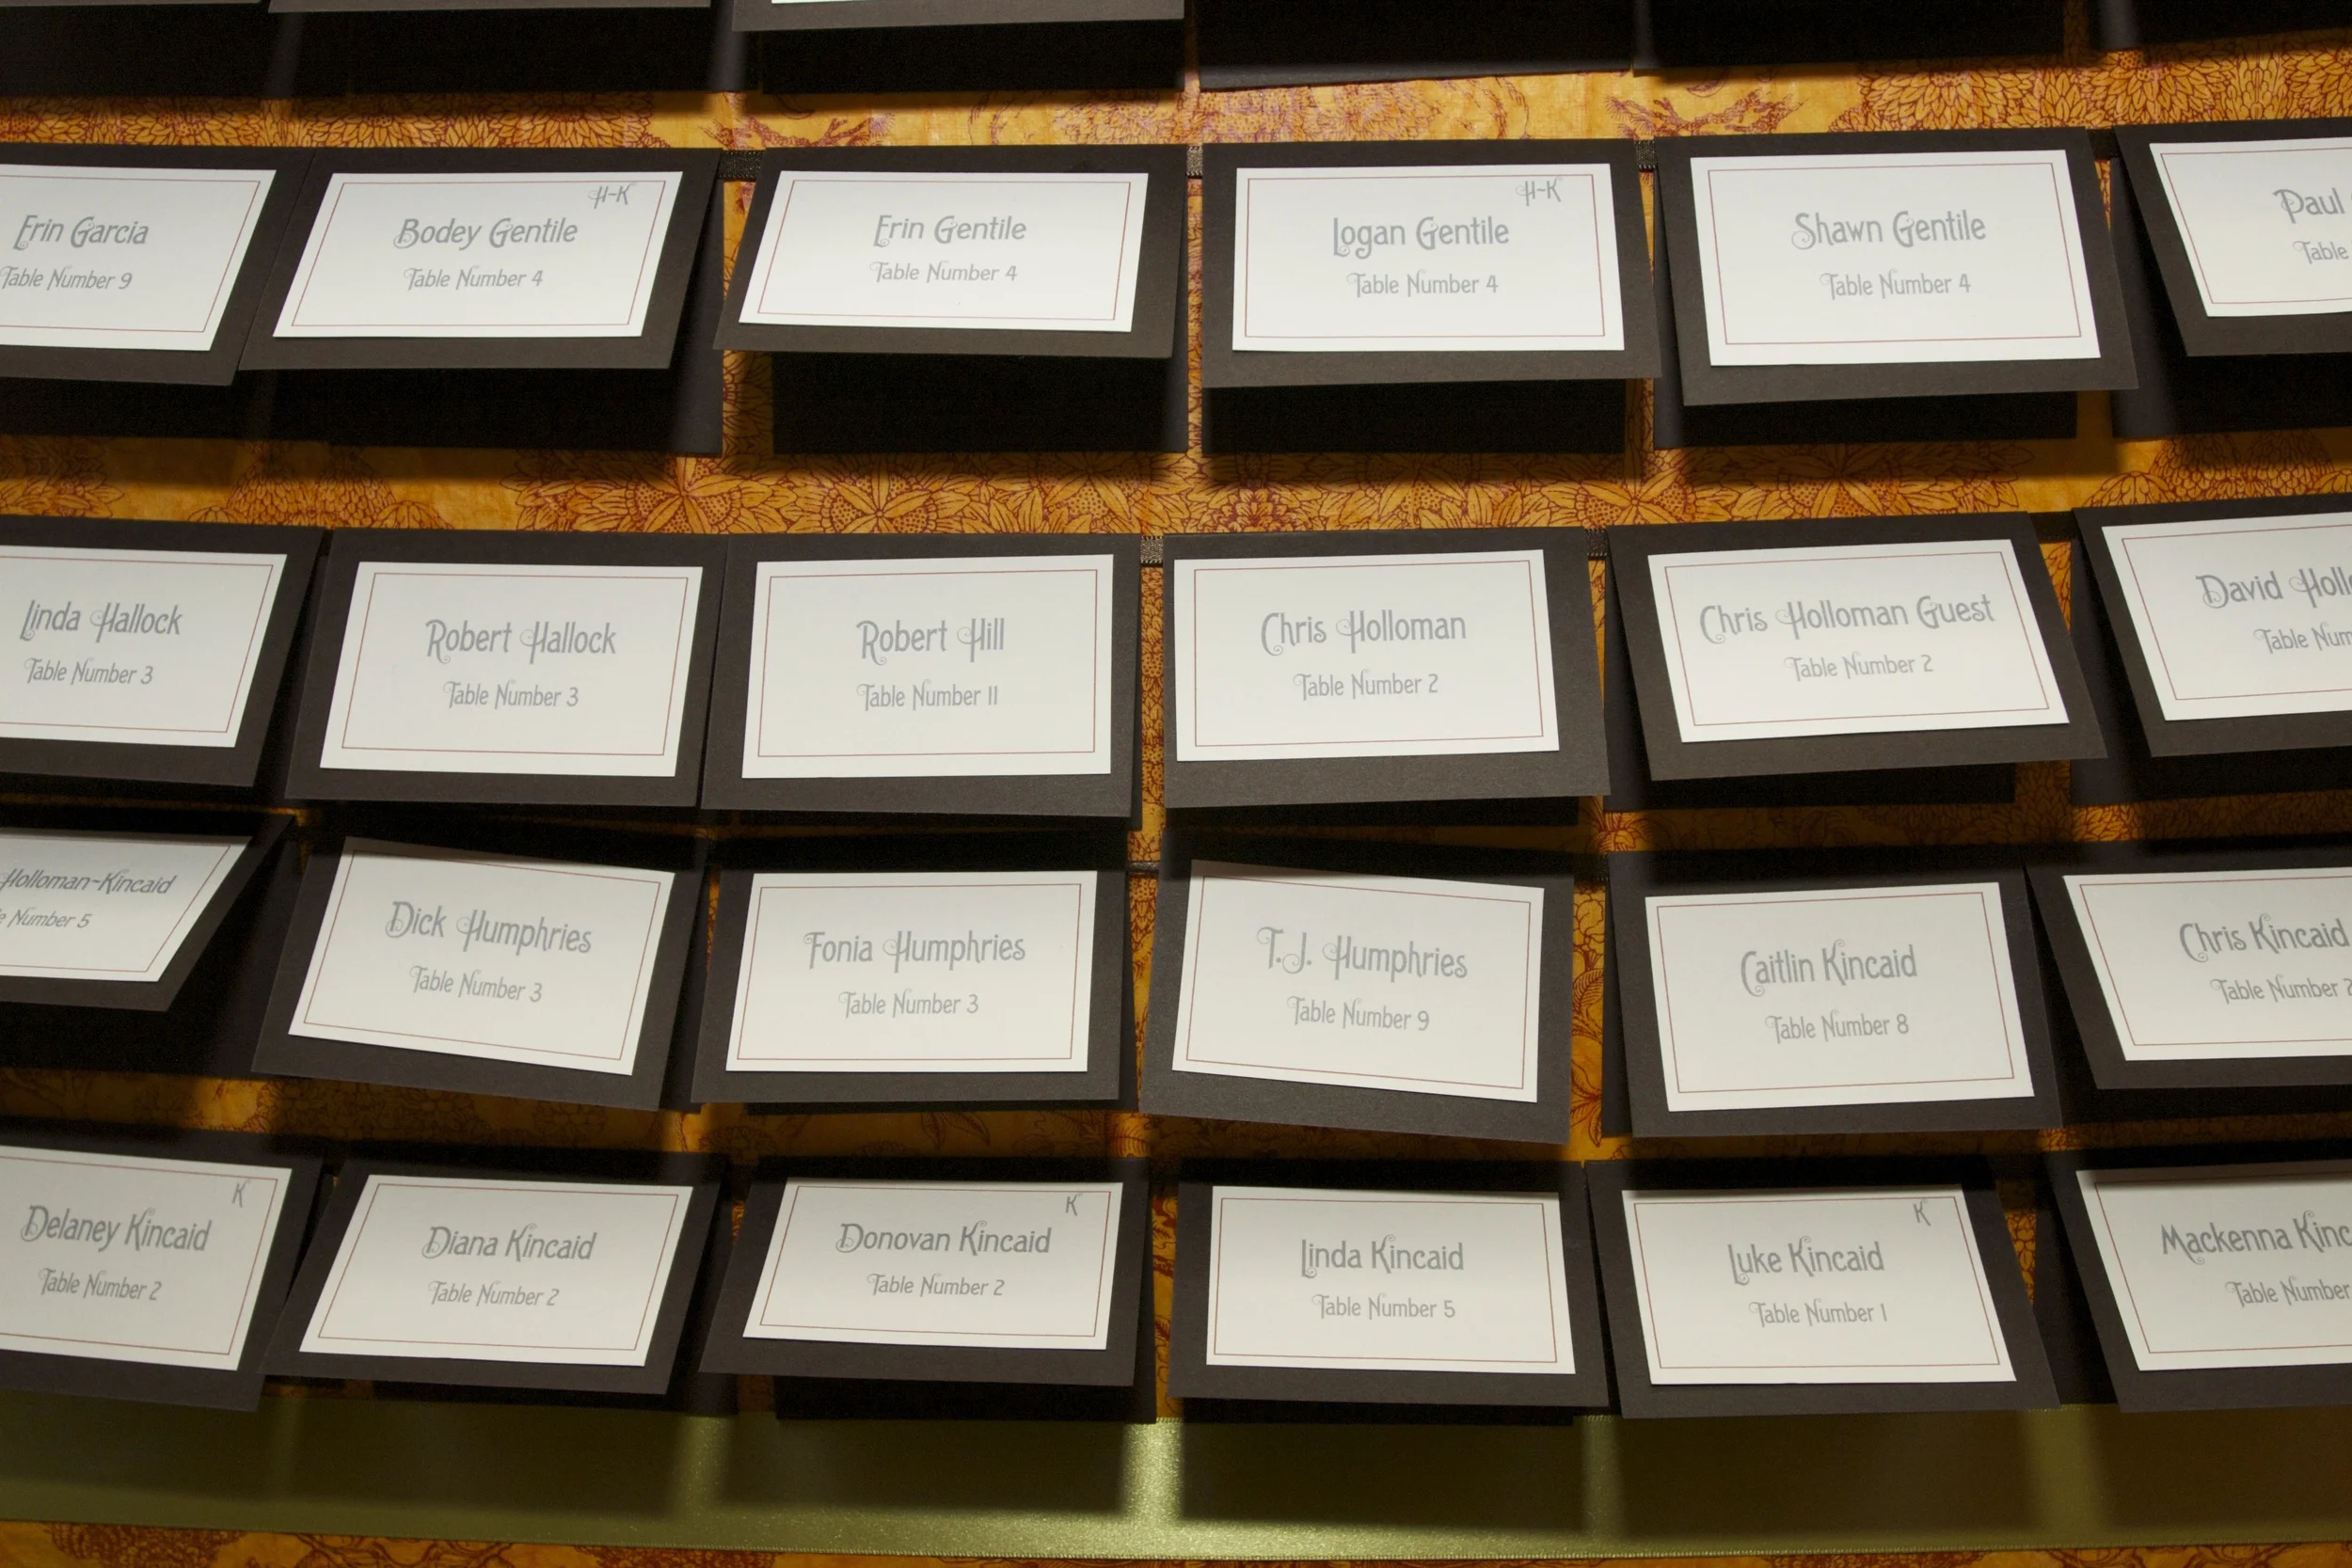 Erin Garcia
Table Number 9
H~K
Bodey Gentile
Table Number 4
Erin Gentile
Table Number 4
H~K
Logan Gentile
Table Number 4
Shawn Gentile
Table Number 4
Paul
Table
Linda Hallock
Table Number 3
Robert Hallock
Table Number 3
Robert Hill
Table Number 11
Chris Holloman
Table Number 2
Chris Holloman Guest
Table Number 2
David
Table
Holloman~Kincaid
Number 5
Dick Humphries
Table Number 3
Fonia Humphries
Table Number 3
T.J. Humphries
Table Number 9
Caitlin Kincaid
Table Number 8
Chris Kincaid
Table Number 2
K
Delaney Kincaid
Table Number 2
Diana Kincaid
Table Number 2
K
Donovan Kincaid
Table Number 2
Linda Kincaid
Table Number 5
K
Luke Kincaid
Table Number 1
Mackenna
Table Number